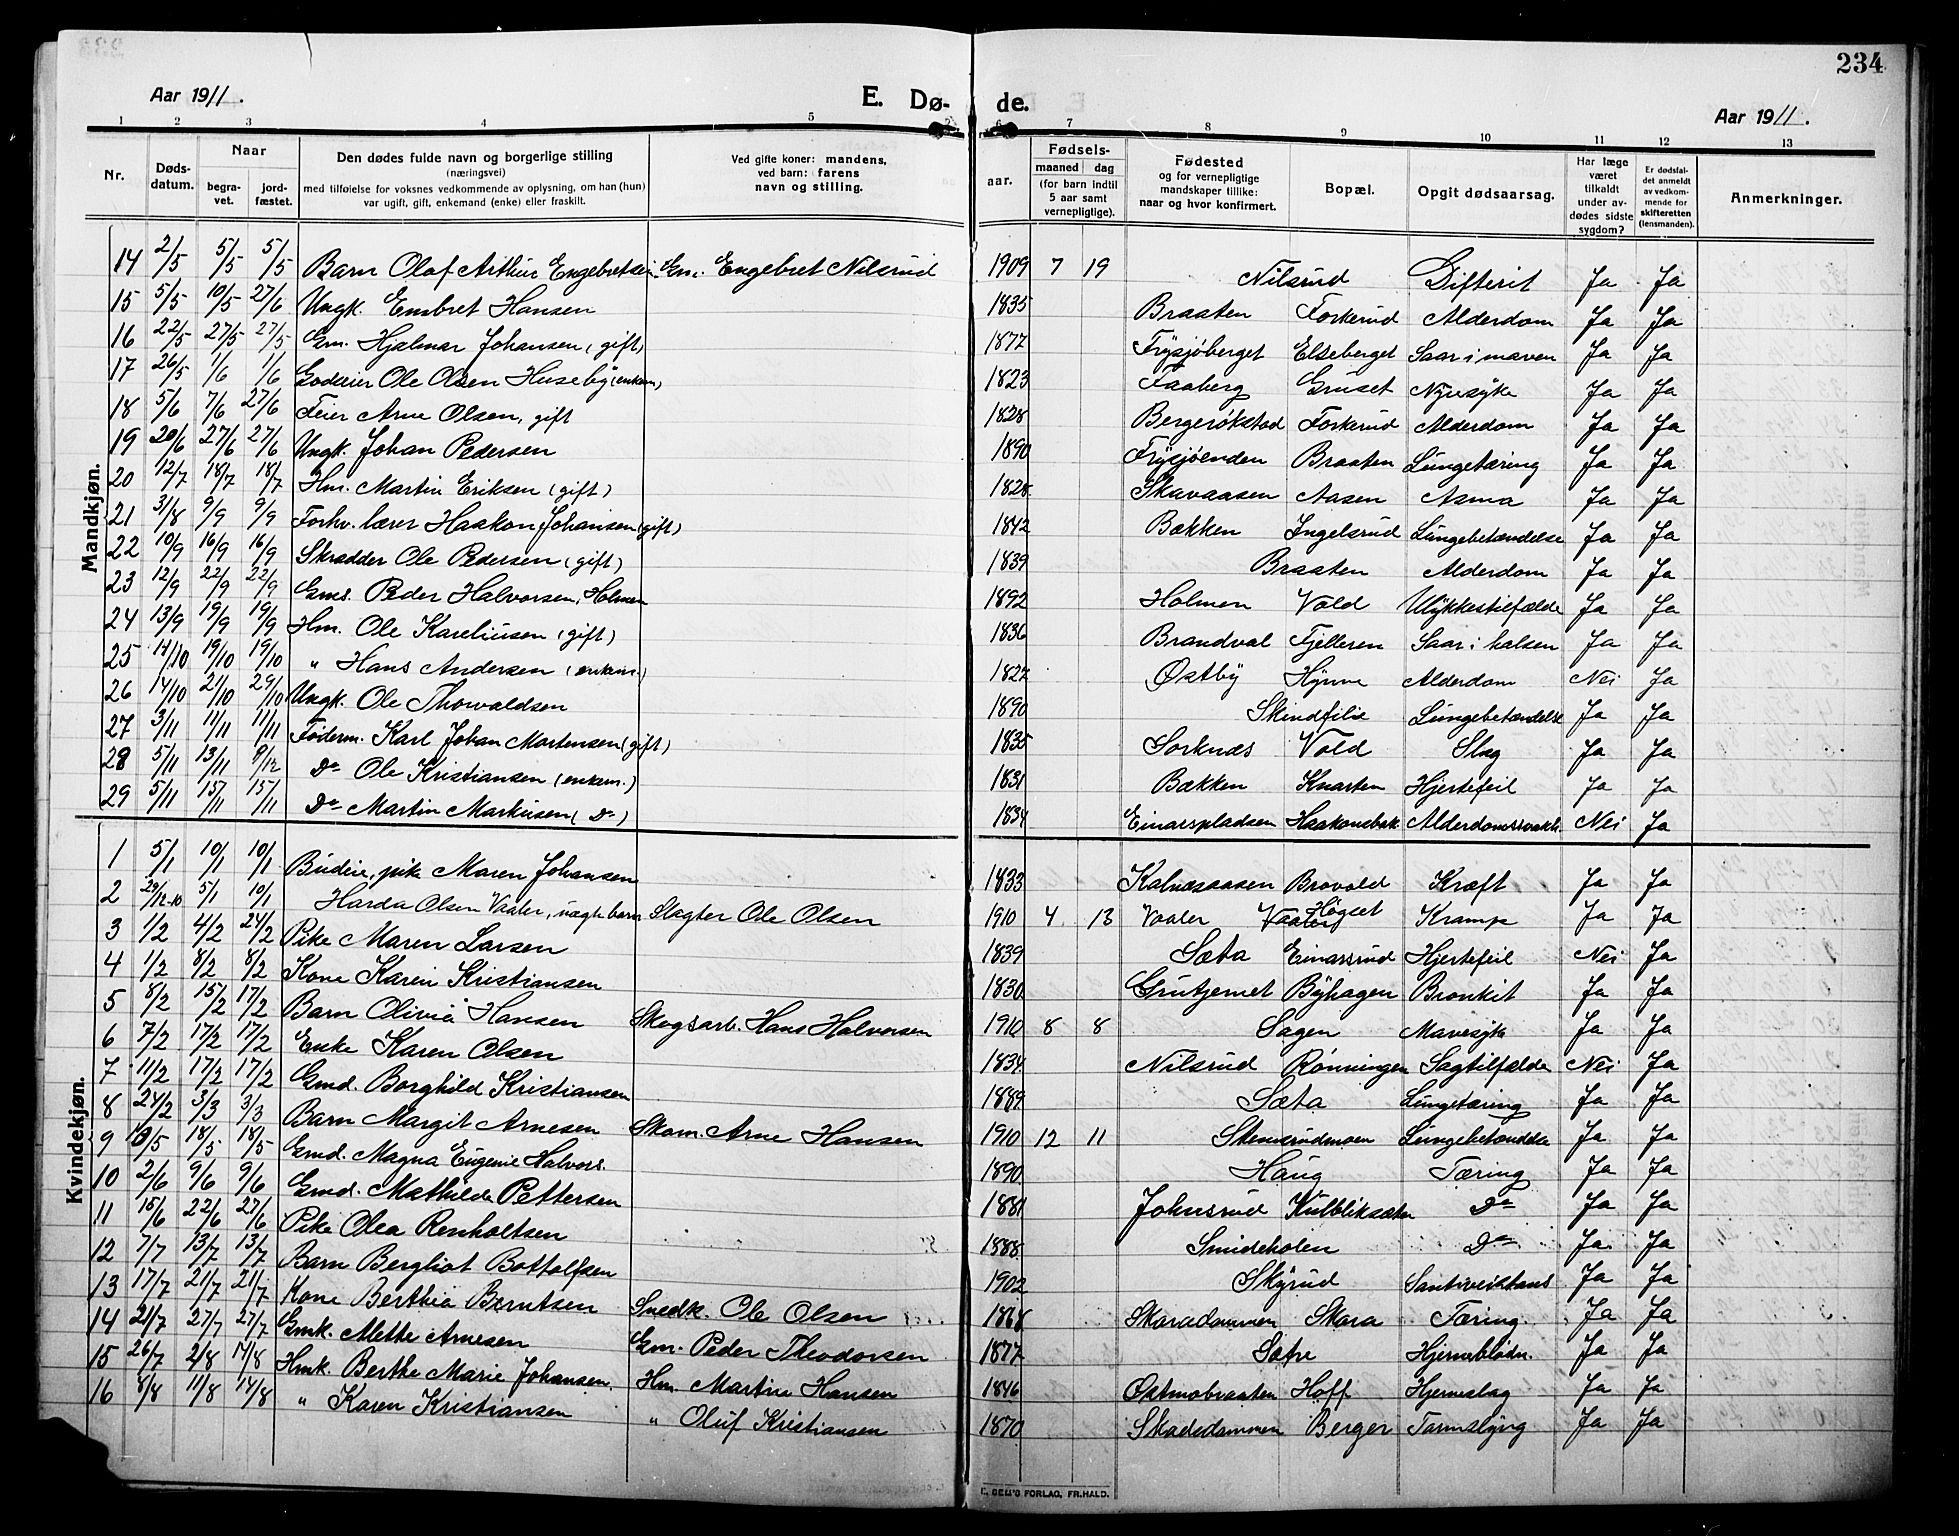 234
Aar 1911.
E. Dø- de.
Aar 1911.
1 2 3 4 5 6 7 8 9 10 11 12 13
Nr. Døds-datum. Naar begra-vet. jord-fæstet. Den dødes fulde navn og borgerlige stilling (næringsvei) med tilføielse for voksnes vedkommende av oplysning, om han (hun) var ugift, gift, enkemand (enke) eller fraskilt. Ved gifte koner: mandens, ved barn: farens navn og stilling. aar. Fødsels- maaned dag (for barn indtil 5 aar samt vernepligtige). Fødested og for vernepligtige mandskaper tillike: naar og hvor konfirmert. Bopæl. Opgit dødsaarsag. Har læge været tilkaldt under av-dødes sidste sygdom? Er dødsfal-det anmeldt av vedkom-mende for skifteretten (lensmanden). Anmerkninger.
Mandkjøn.
14 2/5 5/5 5/5 Barn Olaf Arthur Engebretsen Gm. Engebret Nilsrud 1909 7 19 Nilsrud Difterit Ja Ja
15 5/5 10/5 27/6 Ungk. Embret Hansen 1835 Braaten Forkerud Alderdom Ja Ja
16 22/5 27/5 27/5 Gm. Hjalmar Johansen (gift) 1877 Frysjøberget Elseberget Saar i maven Ja Ja
17 26/5 1/6 1/6 Godeier Ole Olsen Huseby (enkem) 1823 Faaberg Gruset Nyresyke Ja Ja
18 5/6 7/6 27/6 Feier Arne Olsen, gift 1828 Bergerøkstad Forkerud Alderdom Ja Ja
19 20/6 27/6 27/6 Ungk. Johan Pedersen 1890 Frysjøenden Braaten Lungetæring Ja Ja
20 12/7 18/7 18/7 Hm. Martin Eriksen (gift) 1828 Skavaasen Aasen Asma Ja Ja
21 31/8 9/9 9/9 Forhv. lærer Haakon Johansen (gift) 1842 Bækken Ingelsrud Lungebetændelse Ja Ja
22 10/9 16/9 16/9 Skrædder Ole Pedersen (gift) 1839 Braaten Alderdom Ja Ja
23 12/9 22/9 22/9 Gms. Peder Halvorsen, Holmen 1892 Holmen Vold Ulykkestilfælde Ja Ja
24 13/9 19/9 19/9 Hm. Ole Kareliusen (gift) 1836 Brandval Fjelleren Saar i halsen Ja Ja
25 14/10 19/10 19/10 " Hans Andersen (enkem.) 1827 Østby Hynne Alderdom Nei Ja
26 14/10 21/10 29/10 Ungk. Ole Thorvaldsen 1890 Skindfilie Lungebetændelse Ja Ja
27 3/11 11/11 11/11 Føderm. Karl Johan Mortensen (gift) 1835 Sorknæs Vold Slag Ja Ja
28 5/11 13/11 9/12 Do Ole Kristiansen (enkem.) 1831 Bækken Knarten Hjertefeil Ja Ja
29 5/11 15/11 15/11 Do Martin Markusen (Do) 1834 Einarspladsen Haakonsbak Alderdomssvakh. Nei Ja
Kvindekjøn.
1 5/1 10/1 10/1 Budeie, pike Maren Johansen 1833 Kalnæsaasen Brovold Kræft Ja Ja
2 29/12-10 5/1 10/1 Harda Olsen Vaaler, uægte barn Slagter Ole Olsen 1910 4 13 Vaaler Vaaler Høgset Kramp Ja Ja
3 1/2 4/2 24/2 Pike Maren Larsen 1839 Sæta Einarsrud Hjertefeil Nei Ja
4 1/2 8/2 8/2 Kone Karen Kristiansen 1830 Grutjernet Byhagen Bronkit Ja Ja
5 8/2 15/2 17/2 Barn Olivia Hansen Skogsarb. Hans Halvorsen 1910 8 8 Sagen Mavesyke Ja Ja
6 7/2 17/2 17/2 Enke Karen Olsen 1834 Nilsrud Rønningen Sagtilfælde Nei Ja
7 11/2 17/2 17/2 Gmd. Borghild Kristiansen 1889 Sæta Lungetæring Ja Ja
8 24/2 3/3 3/3 Barn Margit Arnesen Skom. Arne Hansen 1910 12 11 Stensrudmoen Lungebetændelse Ja Ja
9 13/5 18/5 18/5 Gmd. Magna Eugenie Halvors. 1890 Haug Tæring Ja Ja
10 2/6 9/6 9/6 Gmd. Mathilde Pettersen 1881 Johnsrud Kulbliksæter Do Ja Ja
11 15/6 22/6 27/6 Pike Olea Renholtsen 1888 Smideholen Do Ja Ja
12 7/7 13/7 13/7 Barn Bergliot Bottolfsen 1902 Skyrud Santiveistans Ja Ja
13 17/7 21/7 21/7 Kone Berthea Berntsen Snedk. Ole Olsen 1868 Skaradammen Skara Tæring Ja Ja
14 21/7 27/7 27/7 Gmk. Mette Arnesen Gm. Peder Theodorsen 1877 Sætre Hjerneblødn. Ja Ja
15 26/7 2/8 14/8 Hmk. Berthe Marie Johansen. Hm. Martin Hansen 1846 Østmobraaten Hoff Hjerneslag Ja Ja
16 8/8 11/8 14/8 " Karen Kristiansen " Oluf Kristiansen 1870 Skadedammen Berger Tarmslyng Ja Ja
E. SEM'S FORLAG, FR.HALD.